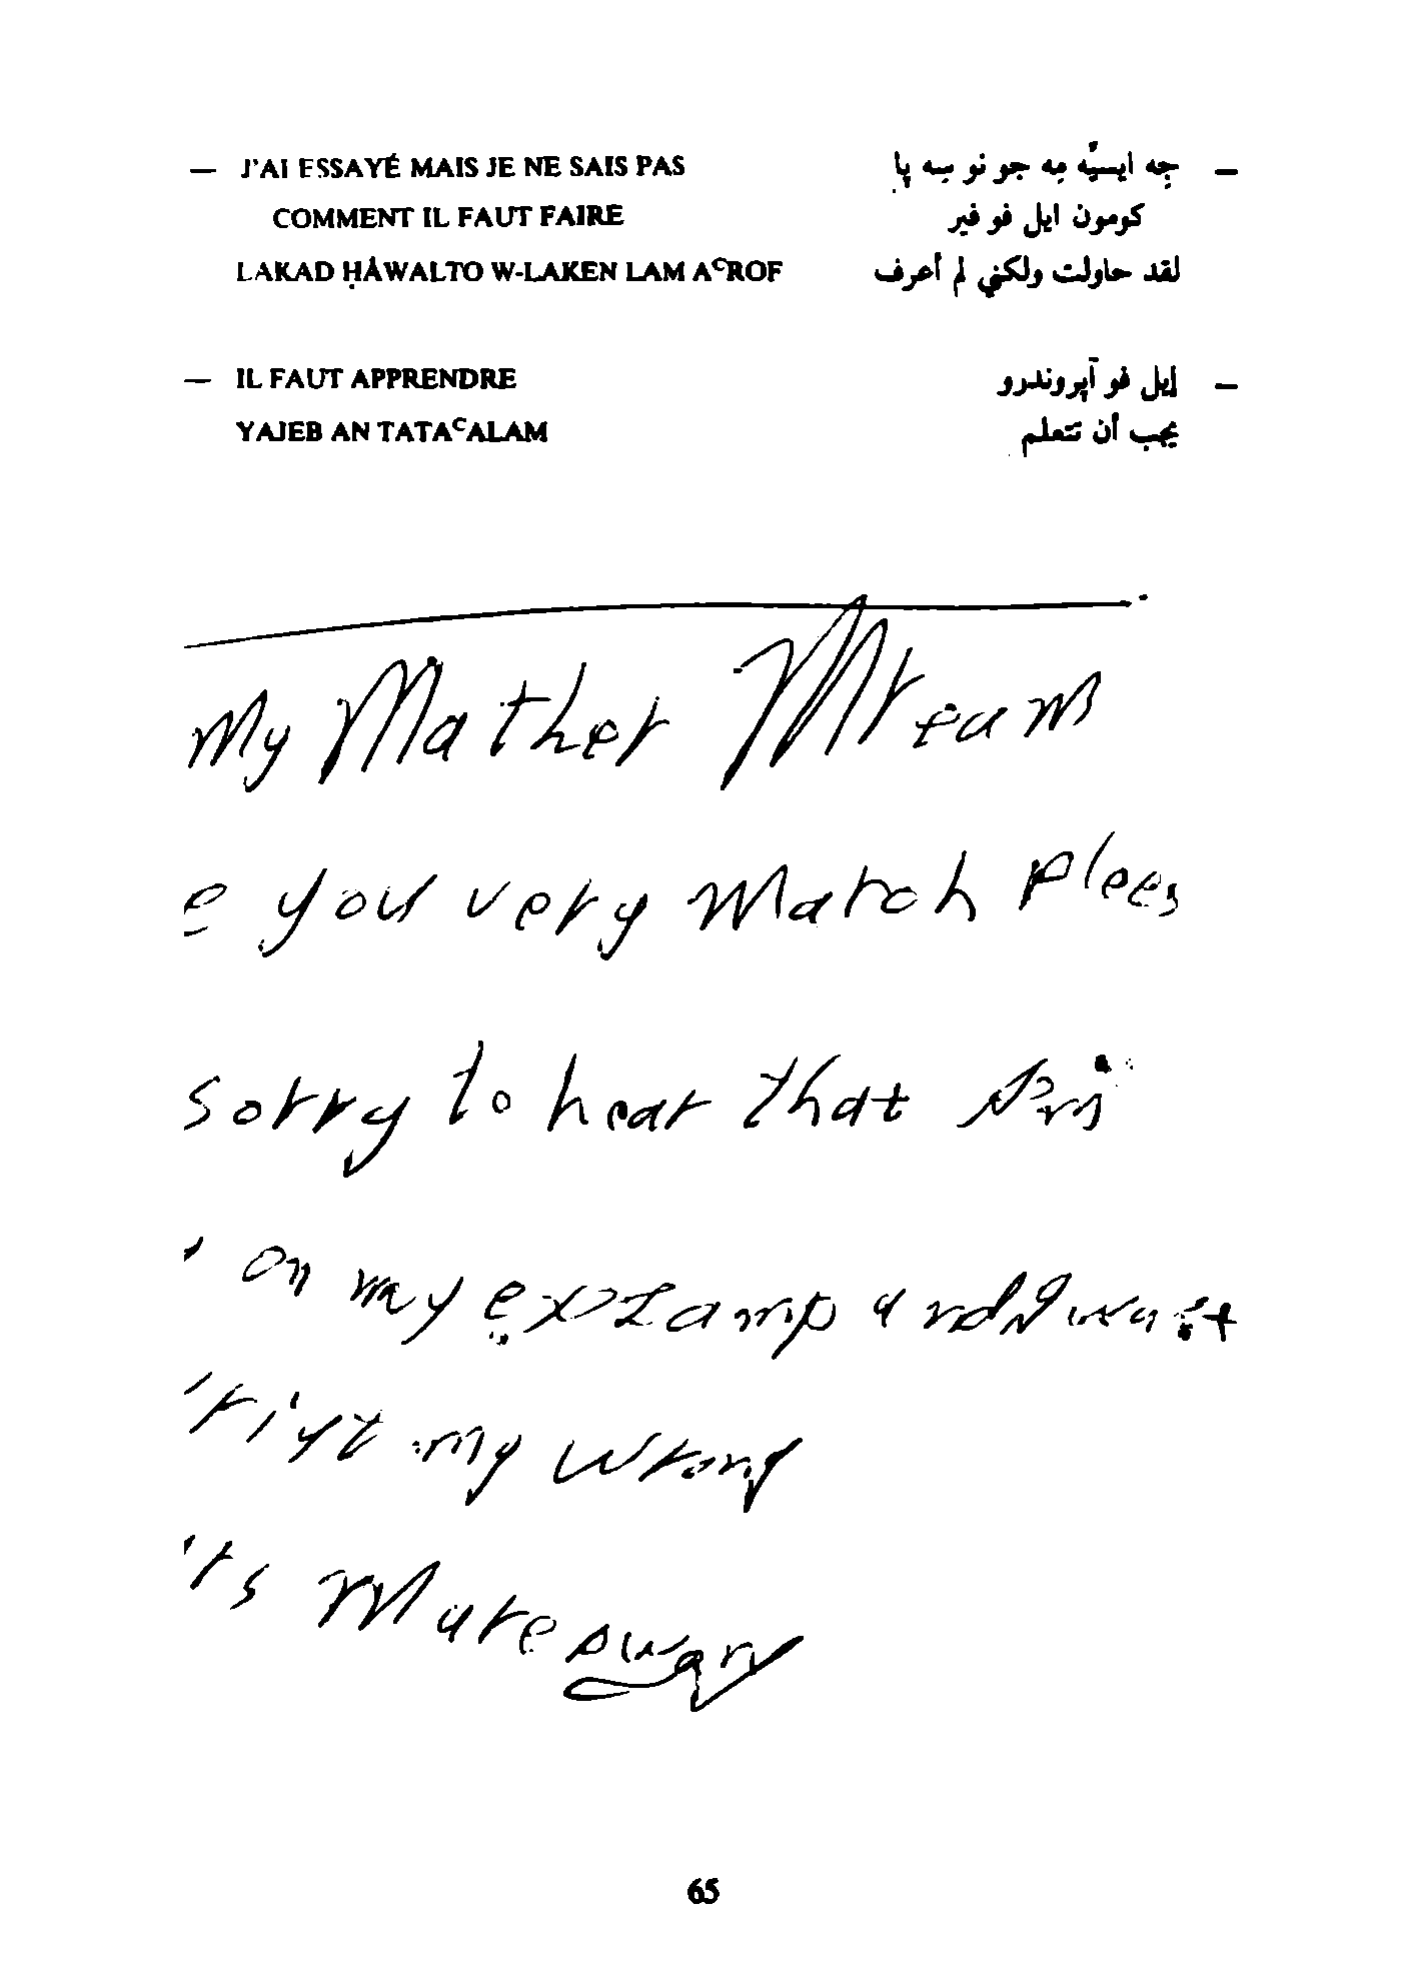 — J'AI ESSAYÉ MAIS JE NE SAIS PAS
COMMENT IL FAUT FAIRE
LAKAD ḤÁWALTO W-LAKEN LAM AᶜROF
— جِه ايسيِّه مِه جو نو سِه پا
كومون ايل فو فير
لقد حاولت ولكني لم أعرف
— IL FAUT APPRENDRE
YAJEB AN TATAᶜALAM
— إيل فو آپروندرو
يجب أن تتعلم
My Mather
e you very March plees
sorry to hear that
on my exLamp and
my wrong
65